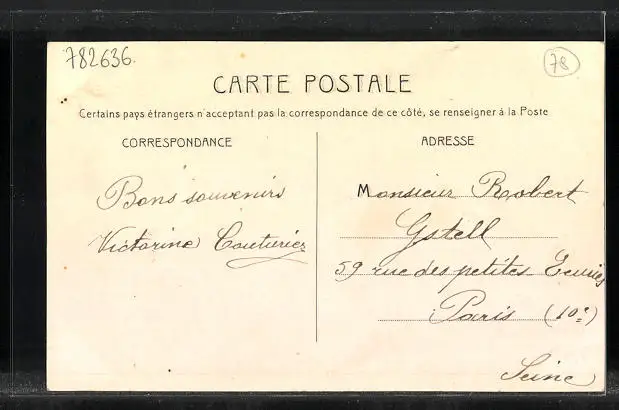 782636.
78
CARTE POSTALE
Certains pays étrangers n'acceptant pas la correspondance de ce côté, se renseigner à la Poste
CORRESPONDANCE
Bons souvenirs
Victorine Couturier
ADRESSE
Monsieur Robert
Gstell
59 rue des petites Ecuries
Paris (10e)
Seine